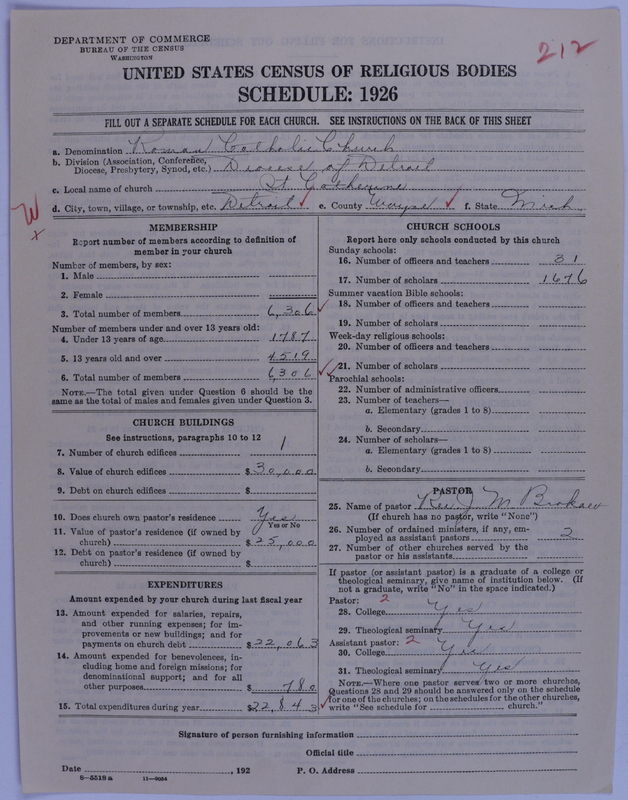 DEPARTMENT OF COMMERCE
BUREAU OF THE CENSUS
WASHINGTON
212
UNITED STATES CENSUS OF RELIGIOUS BODIES
SCHEDULE: 1926
FILL OUT A SEPARATE SCHEDULE FOR EACH CHURCH. SEE INSTRUCTIONS ON THE BACK OF THIS SHEET
a. Denomination Roman Catholic Church
b. Division (Association, Conference, Diocese, Presbytery, Synod, etc.) Diocese of Detroit
c. Local name of church St. Catherine
d. City, town, village, or township, etc. Detroit e. County Wayne f. State Mich
W
x
MEMBERSHIP
Report number of members according to definition of
member in your church
Number of members, by sex:
1. Male
2. Female
3. Total number of members 6,306
Number of members under and over 13 years old:
4. Under 13 years of age 1787
5. 13 years old and over 4519
6. Total number of members 6306
NOTE.—The total given under Question 6 should be
same as the total of males and females given under Question 3.
CHURCH BUILDINGS
See instructions, paragraphs 10 to 12
7. Number of church edifices 1
8. Value of church edifices $30,000
9. Debt on church edifices $
10. Does church own pastor's residence Yes
Yes or No
11. Value of pastor's residence (if owned by
church) $25,000
12. Debt on pastor's residence (if owned by
church) $
EXPENDITURES
Amount expended by your church during last fiscal year
13. Amount expended for salaries, repairs,
and other running expenses; for im-
provements or new buildings; and for
payments on church debt $22,063
14. Amount expended for benevolences, in-
cluding home and foreign missions; for
denominational support; and for all
other purposes $780
15. Total expenditures during year $22,843
CHURCH SCHOOLS
Report here only schools conducted by this church
Sunday schools:
16. Number of officers and teachers 31
17. Number of scholars 1676
Summer vacation Bible schools:
18. Number of officers and teachers
19. Number of scholars
Week-day religious schools:
20. Number of officers and teachers
21. Number of scholars
Parochial schools:
22. Number of administrative officers
23. Number of teachers—
a. Elementary (grades 1 to 8)
b. Secondary
24. Number of scholars—
a. Elementary (grades 1 to 8)
b. Secondary
PASTOR
25. Name of pastor Rev J M Brokaw
(If church has no pastor, write "None")
26. Number of ordained ministers, if any, em-
ployed as assistant pastors 2
27. Number of other churches served by the
pastor or his assistants
If pastor (or assistant pastor) is a graduate of a college or
theological seminary, give name of institution below. (If
not a graduate, write "No" in the space indicated.)
Pastor: 2
28. College Yes
29. Theological seminary Yes
Assistant pastor: 2
30. College Yes
31. Theological seminary Yes
NOTE.—Where one pastor serves two or more churches,
Questions 28 and 29 should be answered only on the schedule
for one of the churches; on the schedules for the other churches,
write "See schedule for church."
Signature of person furnishing information
Official title
Date , 192 P. O. Address
8-5518a 11-9054